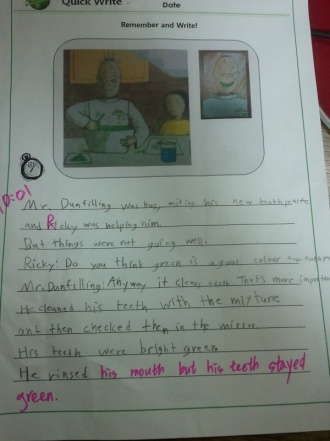 Quick Write
Date
Remember and Write!
10:01
Mr. Dunfilling was busy mixing his new toothpaste
and Ricky was helping him.
But things were not going well.
Ricky: Do you think green is a good colour for
Mr. Dunfilling: Anyway it cleans teeth. That's more important
He cleaned his teeth with the mixture
and then checked them in the mirror.
His teeth were bright green
He rinsed his mouth but his teeth stayed
green.